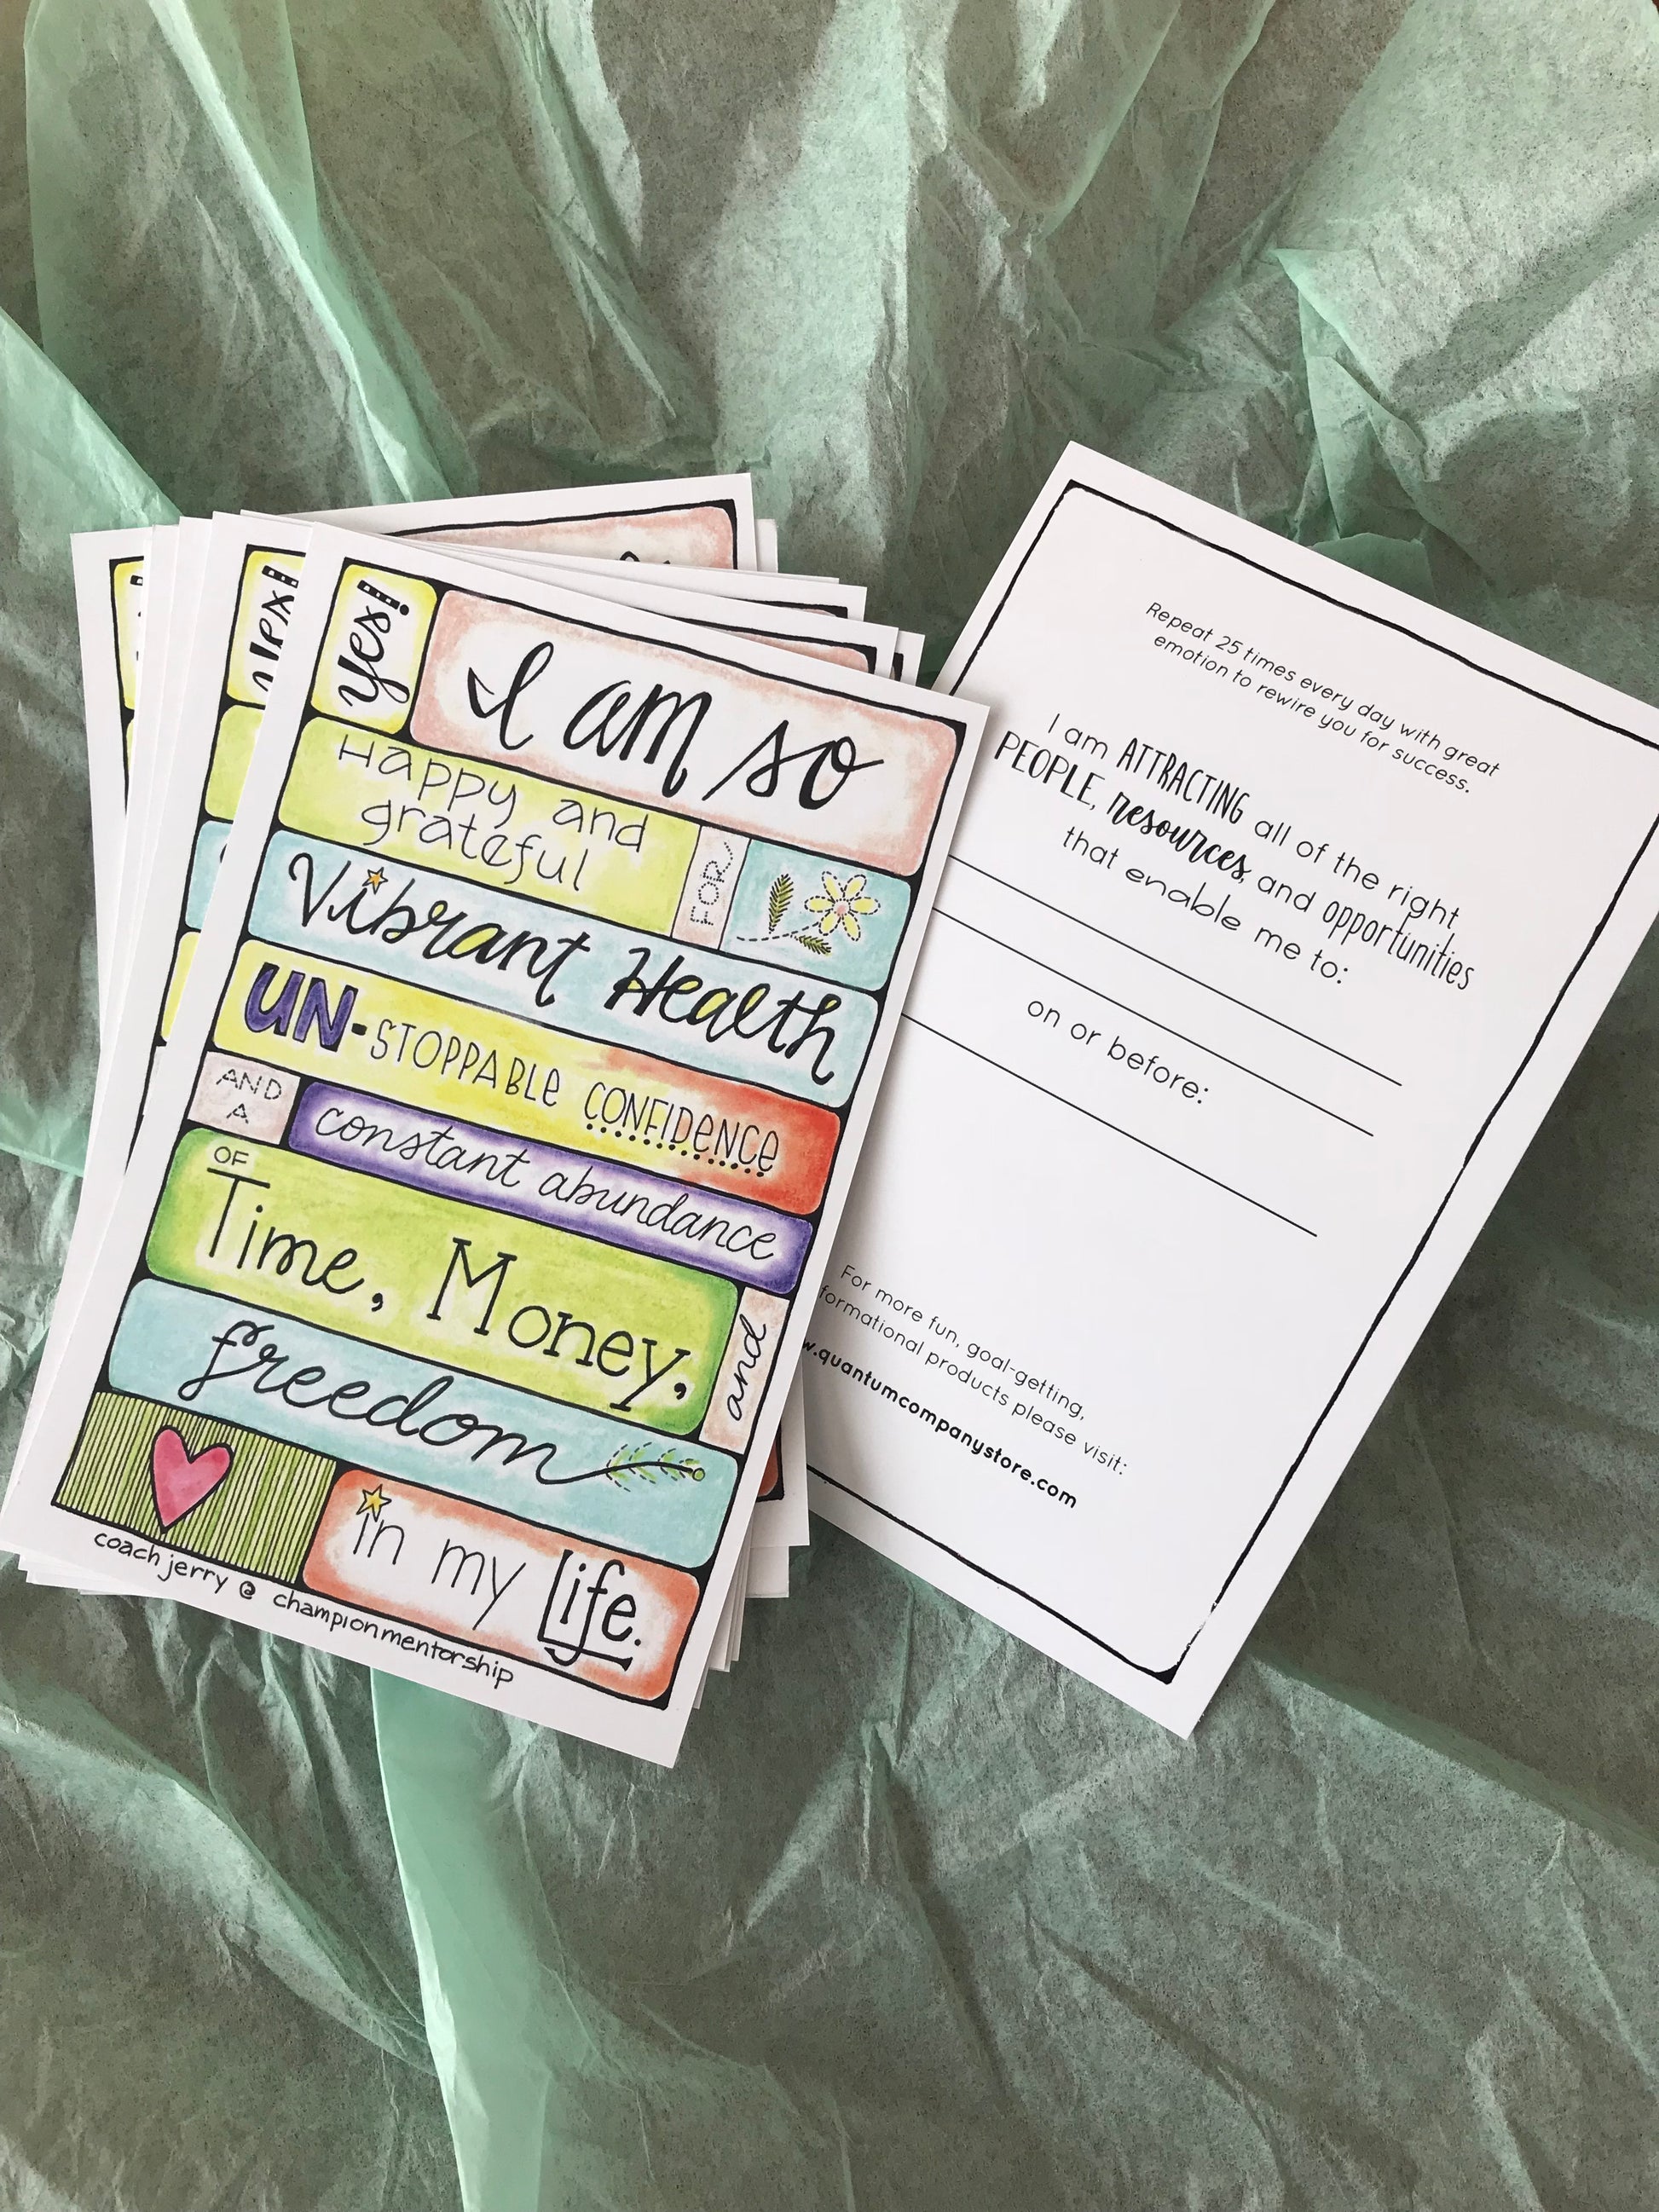 yes!
I am so
Happy and
grateful
FOR
Vibrant Health
UN-STOPPABLE CONFIDENCE
AND
A
constant abundance
OF
Time, Money,
and
freedom
in my Life.
coach jerry @ championmentorship
yes!
Repeat 25 times every day with great
emotion to rewire you for success.
I am ATTRACTING all of the right
PEOPLE, resources, and opportunities
that enable me to:
on or before:
For more fun, goal-getting,
formational products please visit:
w.quantumcompanystore.com